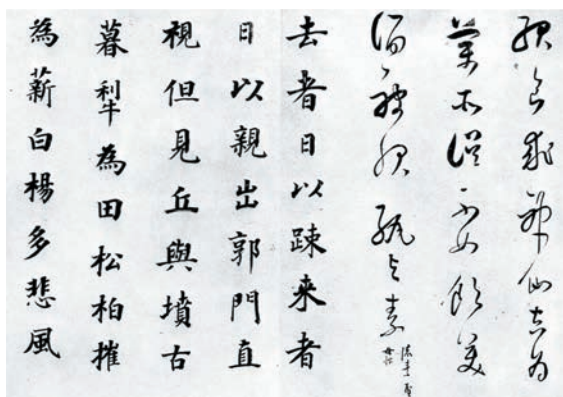 服食求神仙多為
藥所誤不如飲美
酒被服紈與素
去者日以踈來者
日以親出郭門直
視但見丘與墳古
暮犂為田松柏摧
為薪白楊多悲風